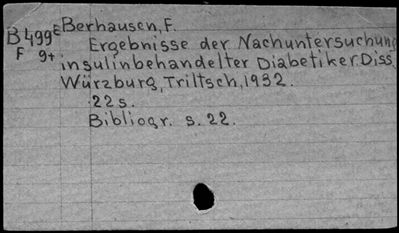 B499E Berhausen, F.
F 9+ Ergebnisse der Nachuntersuchung
insulinbehandelter Diabetiker. Diss.
Würzburg, Triltsch, 1932.
22 s.
Bibliogr. s. 22.